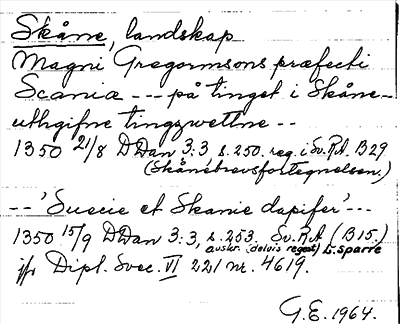 Skåne, landskap
Magni Gregormsons præfecti
Scaniæ --- på tinget i Skåne-
uthgifne tingzwettne --
1350 21/8 DDan 3:3 s. 250. reg. i Sv.R.A. B29
(Skånebrevsfortegnelsen.)
-- 'Suecie et Skanie dapifer' ---
1350 15/9 DDan 3:3, s. 253. Sv.R.A (B15.)
avskr. (delvis regest) E. Sparre
jfr Dipl. Svec. VI 221 nr. 4619.
G.E. 1964.